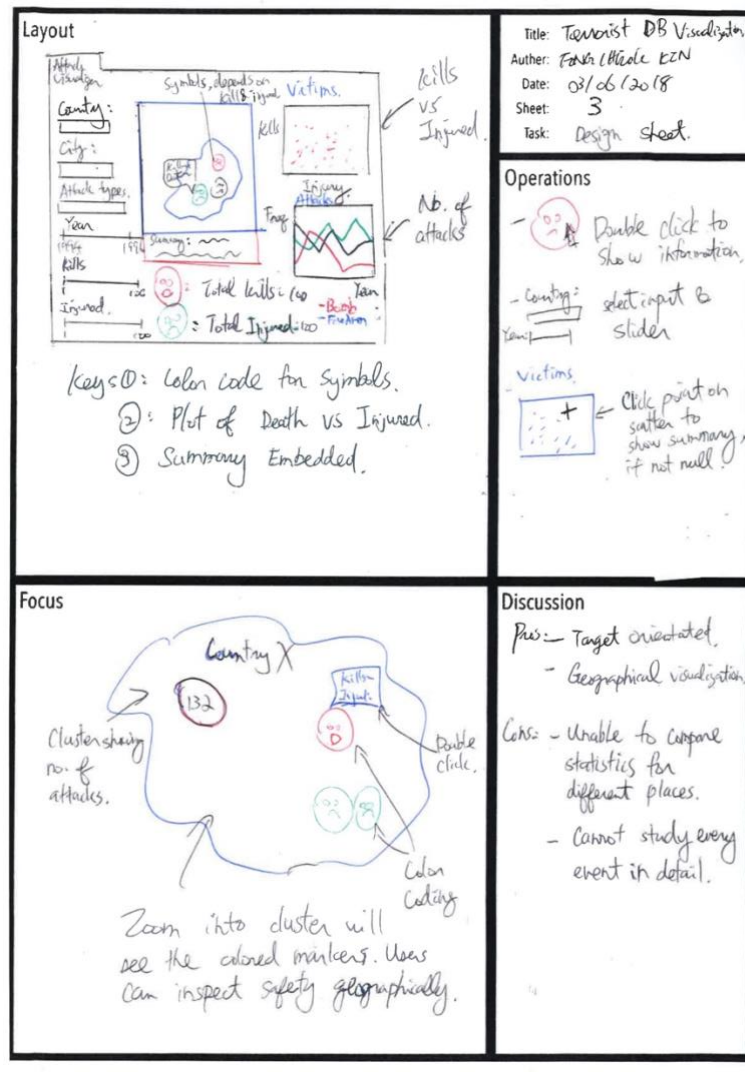 Layout
Attack
Visualizer
Country:
City:
Attack types.
Year
1994 1996
kills
120
Injured.
100
Symbols, depends on
kill & injured
Victims.
kills
Injury
Attacks
Freq
Year
- Bomb
- FireArm
Summary:
: Total kills: 140
: Total Injured: 100
kills
vs
Injured.
No. of
attacks
Keys ①: Color code for Symbols.
②: Plot of Death vs Injured.
③ Summary Embedded.
Title: Terrorist DB Visualization
Auther:
Date: 03/06/2018
Sheet: 3
Task: Design sheet.
Operations
- Double click to
show information,
- Country: select input &
slider
Year:
- Victims
Click point on
scatter to
show summary,
if not null.
Focus
Country X
132
Kills=
Injured=
Cluster showing
no. of
attacks.
Double
click.
Color
Coding
Zoom into cluster will
see the colored markers. Users
can inspect safety geographically.
Discussion
Pros: - Target orientated.
- Geographical visualization,
Cons: - Unable to compare
statistics for
different places.
- Cannot study every
event in detail.